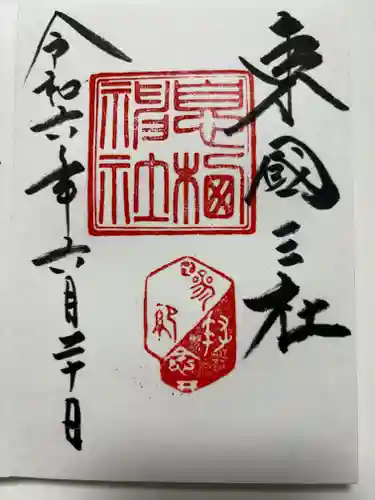 東國三社
息栖
神社
令和六年六月二十日